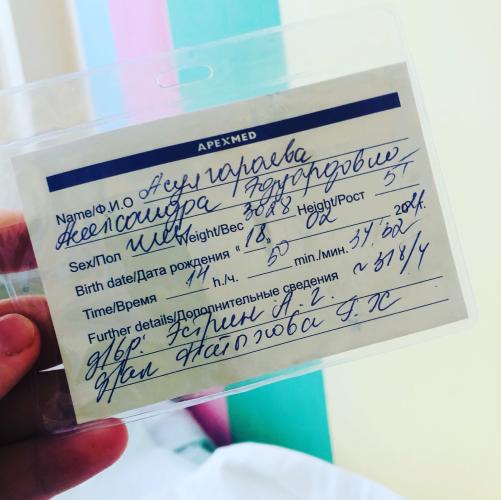 APEXMED
Name/Ф.И.О Асулгараева
Александра Эдуардовна
Sex/Пол жен Weight/Вес 3028 Height/Рост 51
Birth date/Дата рождения “18„ 02 2021.
Time/Время 14 h./ч. 50 min./мин. 34, 32
Further details/Дополнительные сведения ~ 318/4
Д/бр. А. Г.
Г. Х